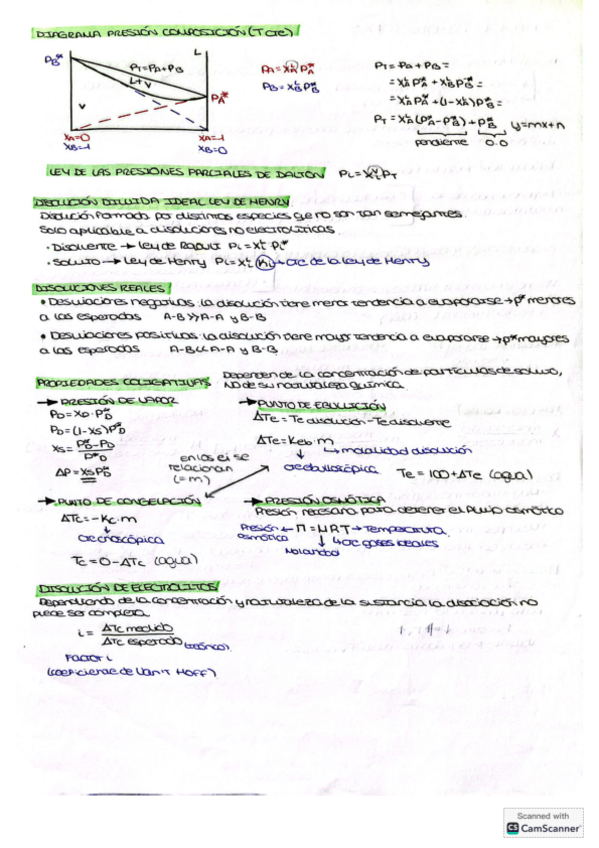 DIAGRAMA PRESIÓN COMPOSICIÓN (T CTE)
PB* L
PT=PA+PB
L+V
V
PA*
XA=0 XA=1
XB=1 XB=0
PA = XA^L PA*
PB = XB^L PB*
PT = PA + PB =
= XA^L PA* + XB^L PB* =
= XA^L PA* + (1-XA^L) PB* =
PT = XA^L (PA*-PB*) + PB* y=mx+n
pendiente O.O
LEY DE LAS PRESIONES PARCIALES DE DALTON Pi = Xi^V PT
DISOLUCIÓN DILUIDA IDEAL LEY DE HENRY
Disolución formada por distintas especies que no son tan semejantes.
Solo aplicable a disoluciones no electrolíticas.
· Disolvente → Ley de Raoult Pi = Xi^L · Pi*
· Soluto → Ley de Henry Pi = Xi^L Ki → cte de la ley de Henry
DISOLUCIONES REALES
• Desviaciones negativas: la disolución tiene menor tendencia a evaporarse → p* menores
a las esperadas A-B >> A-A y B-B
• Desviaciones positivas: la disolución tiene mayor tendencia a evaporarse → p* mayores
a las esperadas A-B << A-A y B-B
PROPIEDADES COLIGATIVAS Dependen de la concentración de partículas de soluto,
NO de su naturaleza química.
→ PRESIÓN DE VAPOR
PD = XD · PD*
PD = (1-XS) PD*
XS = PD*-PD / PD*
ΔP = XS PD*
→ PUNTO DE EBULLICIÓN
ΔTe = Te disolución - Te disolvente
ΔTe = Keb · m
→ molalidad disolución
cte ebulloscópica Te = 100 + ΔTe (agua)
en los ej se
relacionan
(= m)
→ PUNTO DE CONGELACIÓN
ΔTc = - Kc · m
cte crioscópica
Tc = 0 - ΔTc (agua)
→ PRESIÓN OSMÓTICA
Presión necesaria para detener el flujo osmótico
Presión ← Π = M R T → Temperatura
osmótica → cte gases ideales
Molaridad
DISOLUCIÓN DE ELECTROLITOS
Dependiendo de la concentración y naturaleza de la sustancia la disociación no
puede ser completa.
i = ΔTc medido / ΔTc esperado (teórico)
Factor i
(coeficiente de Van't Hoff)
Scanned with
CS CamScanner